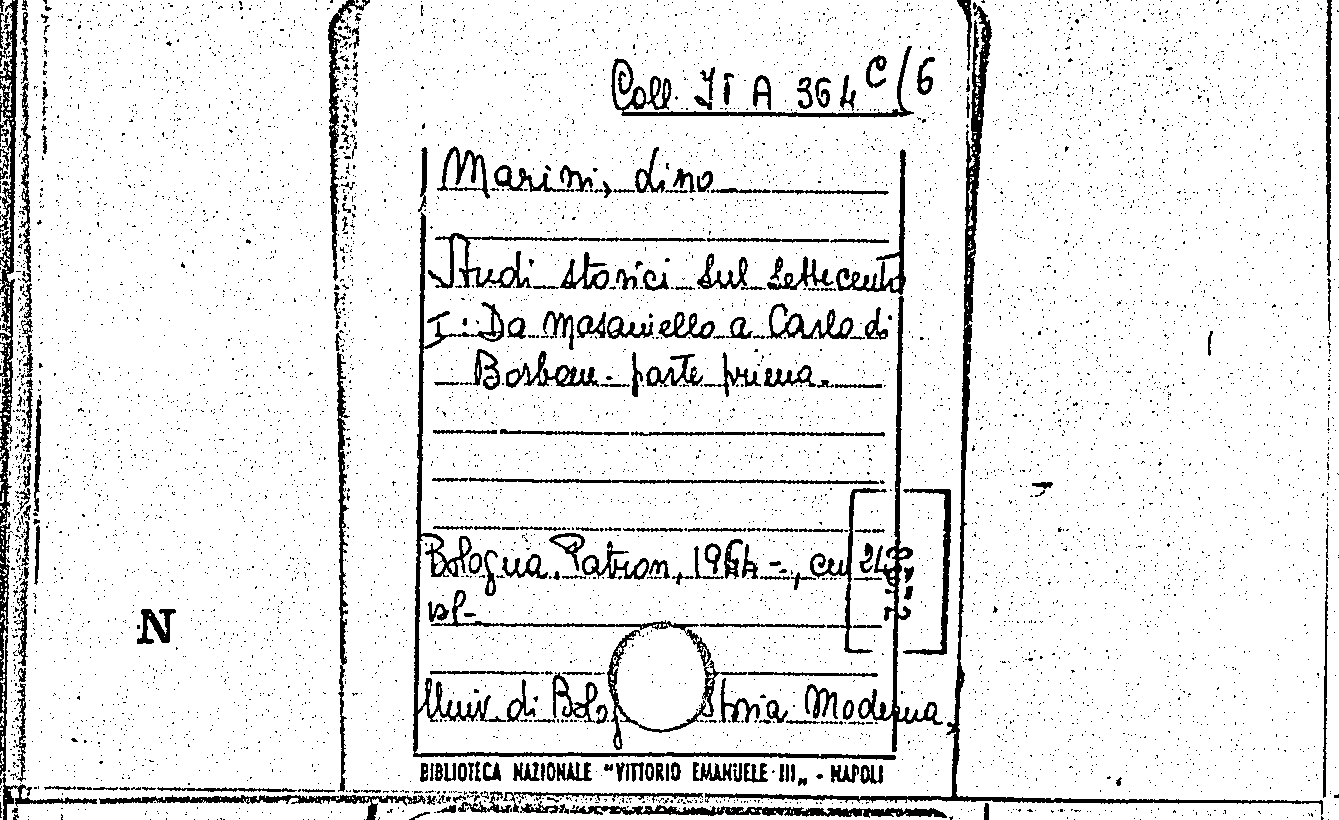 Coll. IT A 364 C/6
Marini, lino
Studi storici sul settecento
I: Da Masaniello a Carlo di
Borbone - parte prima.
Bologna, Patron, 1964 -, cm 24
vol-
N
Univ. di Bolog Storia Moderna
BIBLIOTECA NAZIONALE "VITTORIO EMANUELE III" - NAPOLI